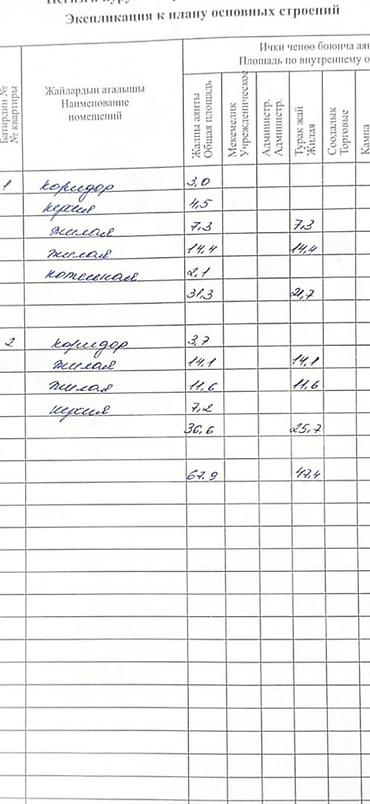 Экспликация к плану основных строений
Ички ченөө боюнча
Площадь по внутреннему
Батирдин №
№ квартиры
Жайлардын аталышы
Наименование
помещений
Жалпы аянты
Общая площадь
Мекемелик
Учрежденическое
Администр.
Администр.
Турак жай
Жилая
Соодалык
Торговые
Кампа
1 коридор 3,0
кухня 4,5
жилая 7,3 7,3
жилая 14,4 14,4
котельная 2,1
31,3 21,7
2 коридор 3,7
жилая 14,1 14,1
жилая 11,6 11,6
кухня 7,2
36,6 25,7
67.9 47.4